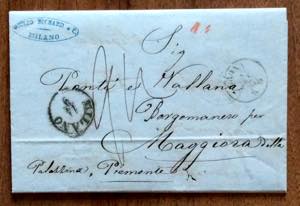 GIULIO RICHARD & C.
MILANO
Sig
Ponti e Vallana
Borgomanero per
MILANO
Maggiora
Palazzina, Piemonte